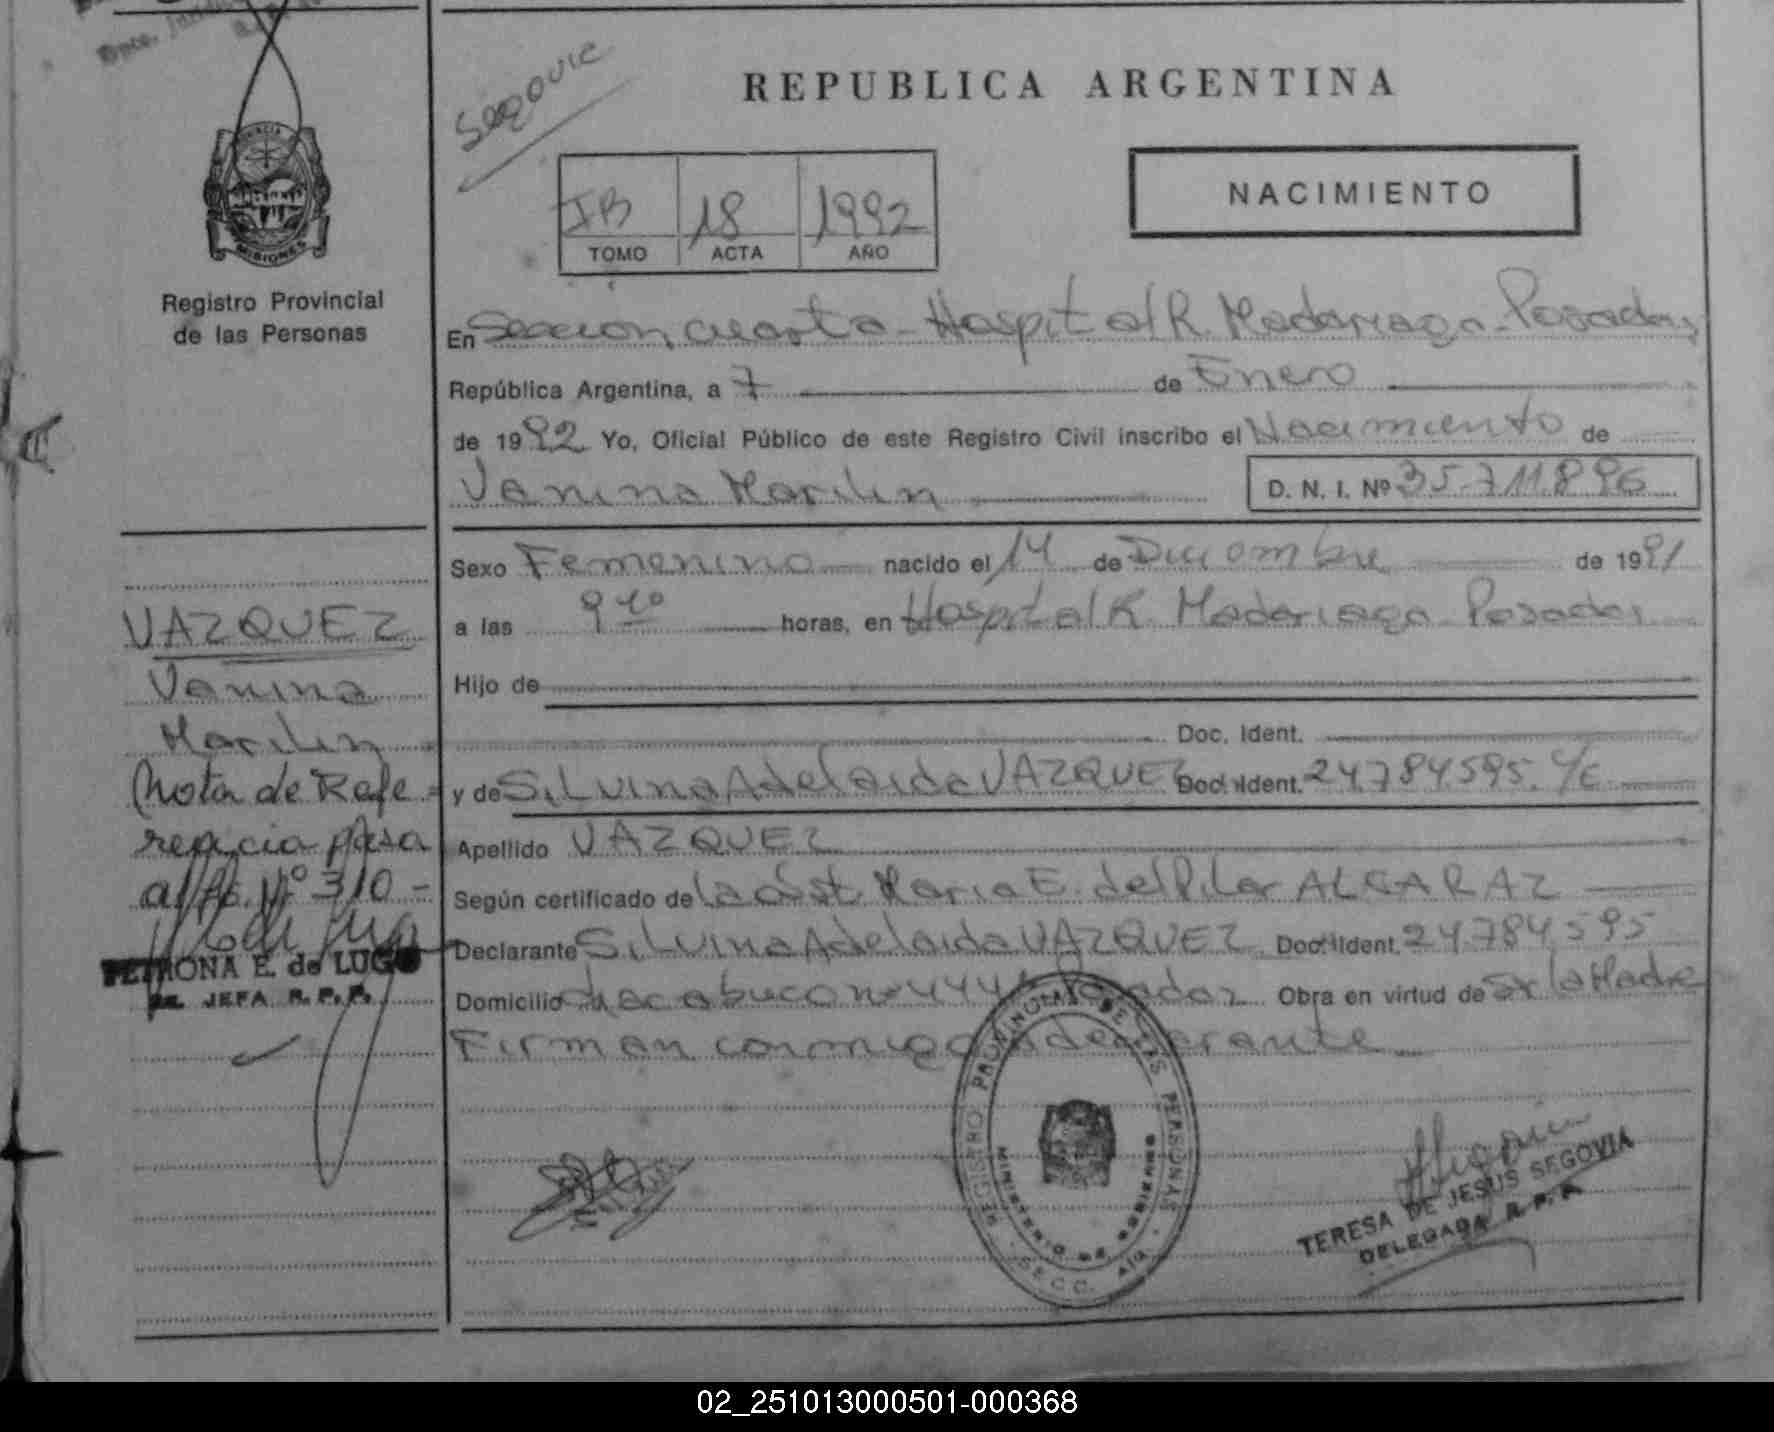 Segovia
REPUBLICA ARGENTINA
NACIMIENTO
IB 18 1992
TOMO ACTA AÑO
MISIONES
Registro Provincial
de las Personas
En Sección cuarta Hospital R. Madariaga - Posadas
República Argentina, a 7 de Enero
de 1992 Yo, Oficial Público de este Registro Civil inscribo el Nacimiento de
Vanina Marilin D. N. I. Nº 35.711.896
Sexo Femenino nacido el 14 de Diciembre de 1991
a las 9 horas, en Hospital R. Madariaga Posadas
Hijo de
Doc. Ident.
y de Silvina Adelaida VAZQUEZ Doc. Ident. 24.784.595
Apellido VAZQUEZ
Según certificado de la obst. Maria E. del Pilar ALCARAZ
Declarante Silvina Adelaida VAZQUEZ Doc. Ident. 24.784595
Domicilio chacabuco nº Posadas Obra en virtud de la Madre
Firman conmigo declarante
VAZQUEZ
Vanina
Marilin
(Nota de Refe=
rencia pasa
al Fo. Nº 310 -
PETRONA E. de LUGO
JEFA R. P. P.
REGISTRO PROVINCIAL DE LAS PERSONAS
MINISTERIO DE GOBIERNO
SECC. 4ta.
TERESA DE JESUS SEGOVIA
DELEGADA R. P. P.
02_251013000501-000368